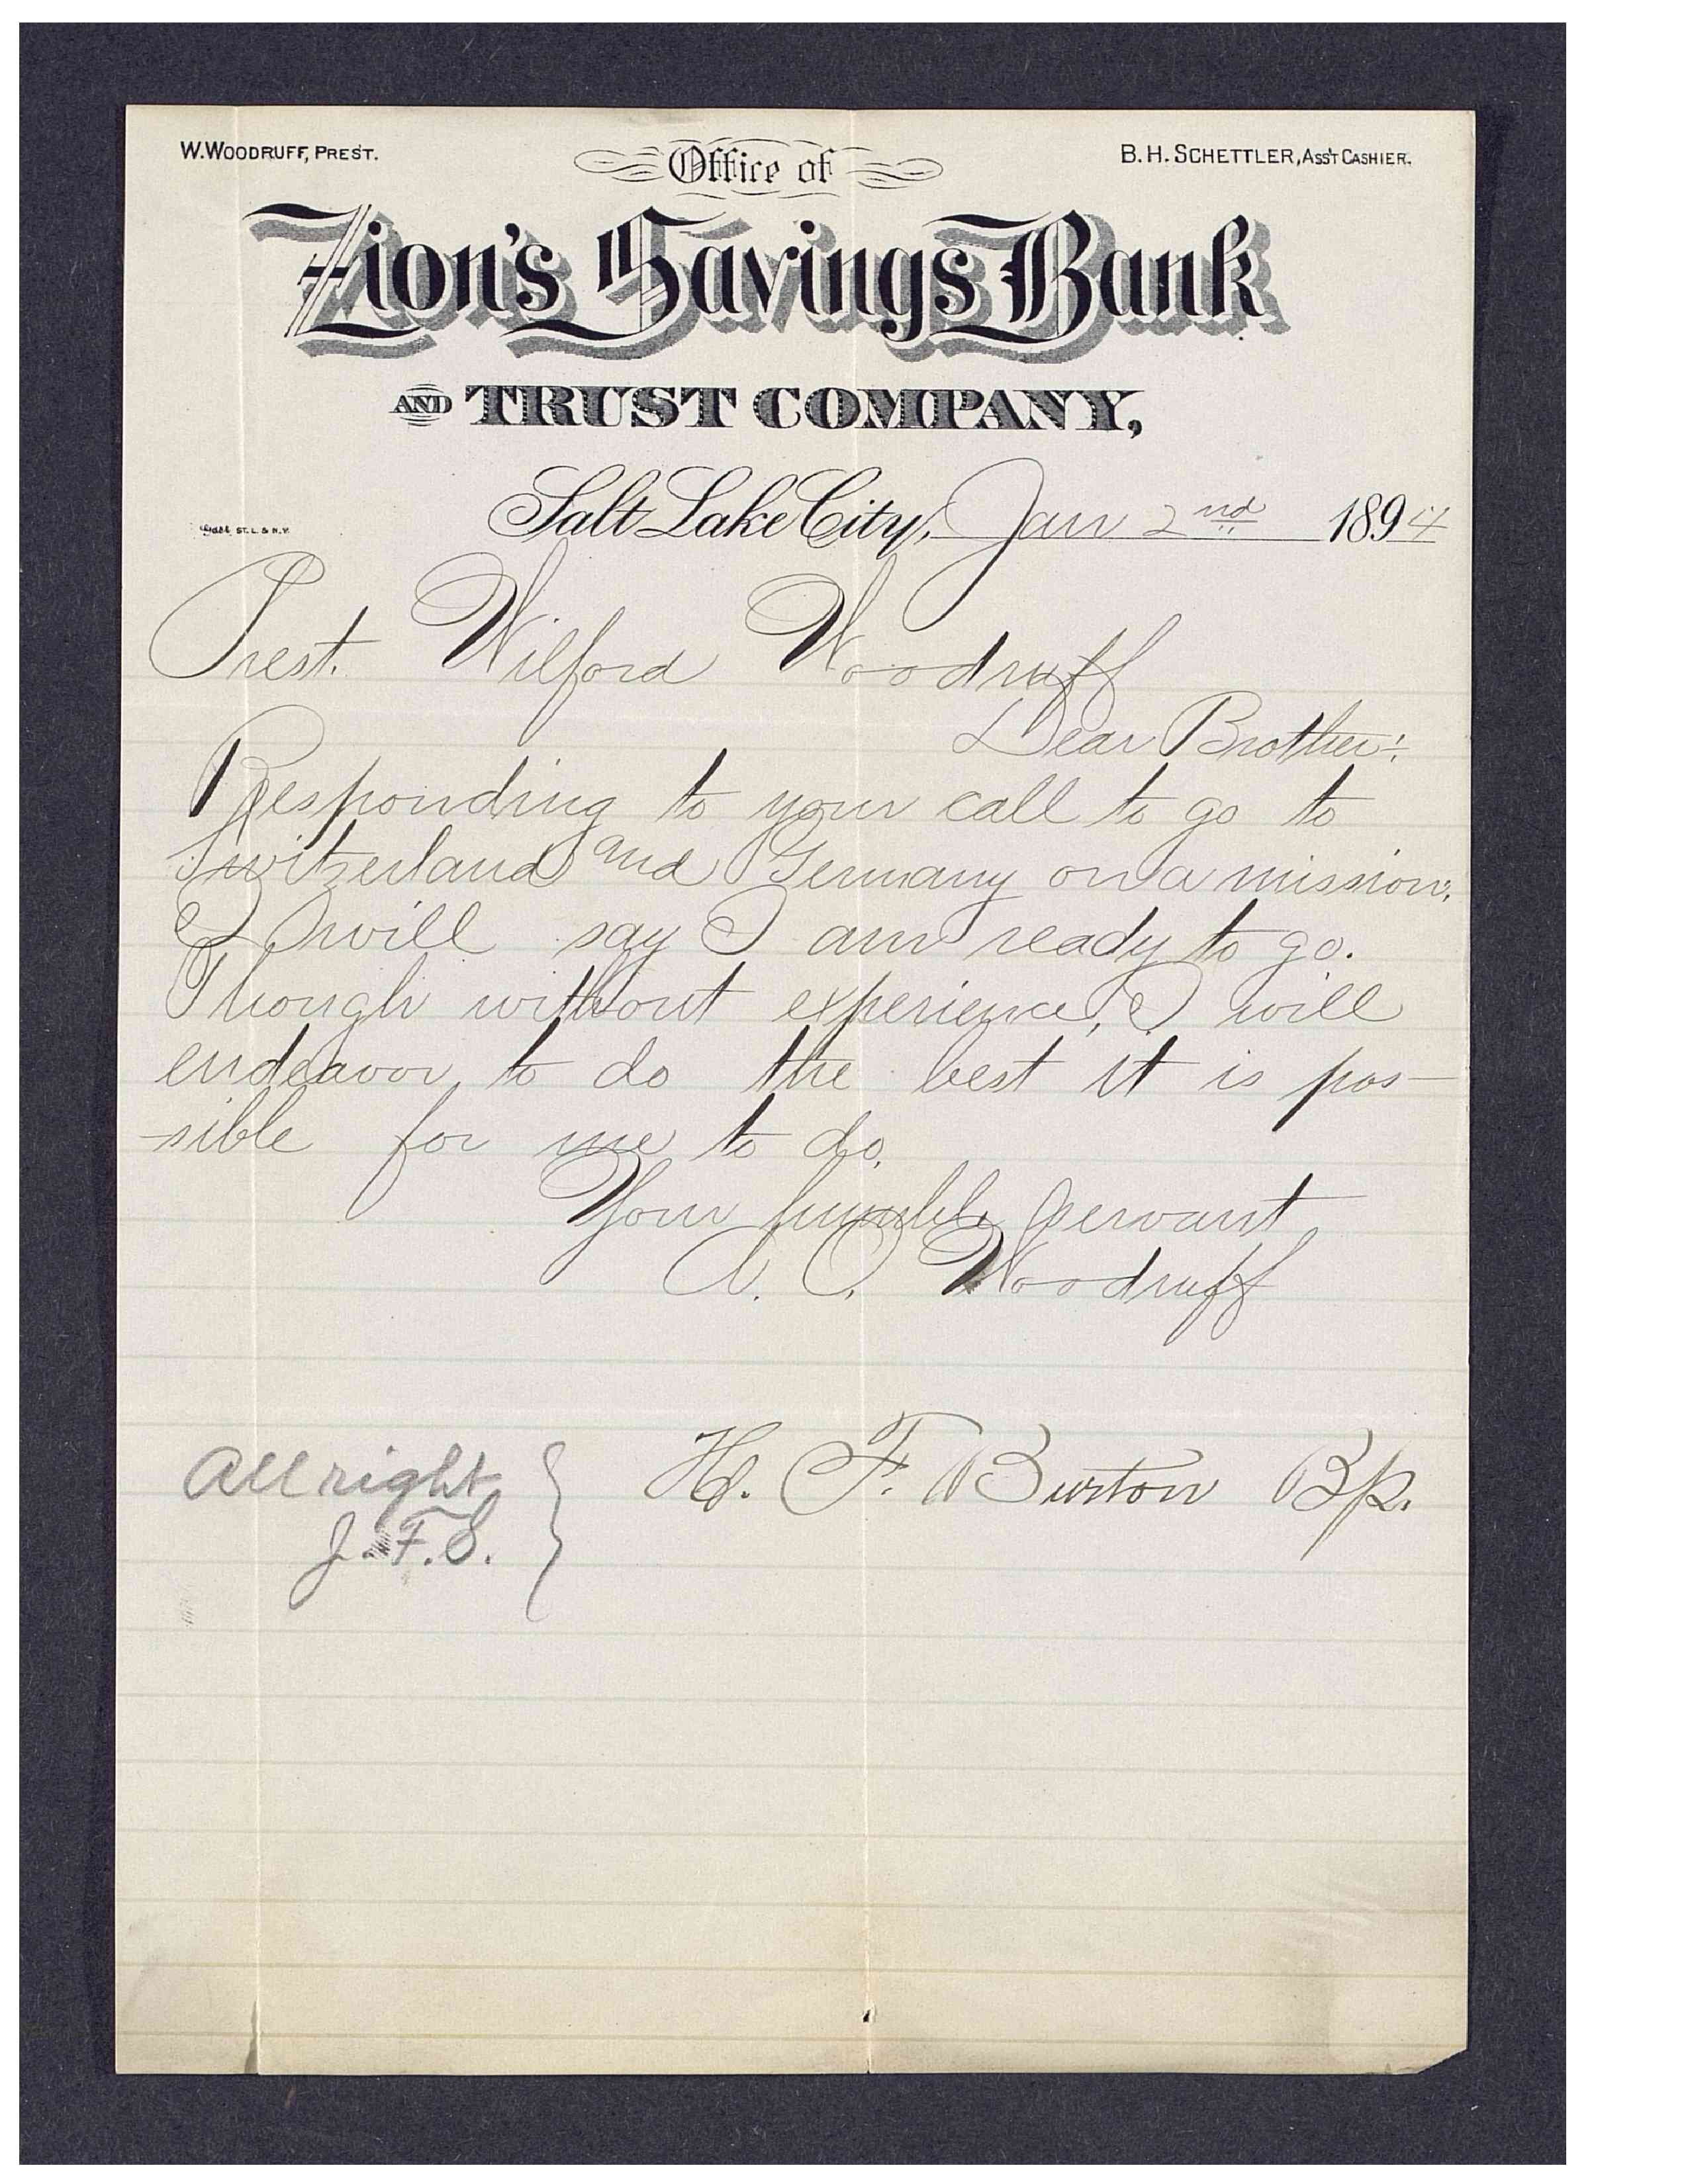 W. WOODRUFF, PREST.
Office of
B. H. SCHETTLER, ASS'T CASHIER.
Zion's Savings Bank
AND TRUST COMPANY,
Salt Lake City, Jan 2nd 1894
ST. L. & N.Y.
Prest. Wilford Woodruff
Dear Brother:
Responding to your call to go to
Switzerland and Germany on a mission,
I will say I am ready to go.
Though without experience, I will
endeavor to do the best it is pos-
sible for me to do.
Your humble servant
A. O. Woodruff
All right
J. F. S.
H. F. Burton Bp.